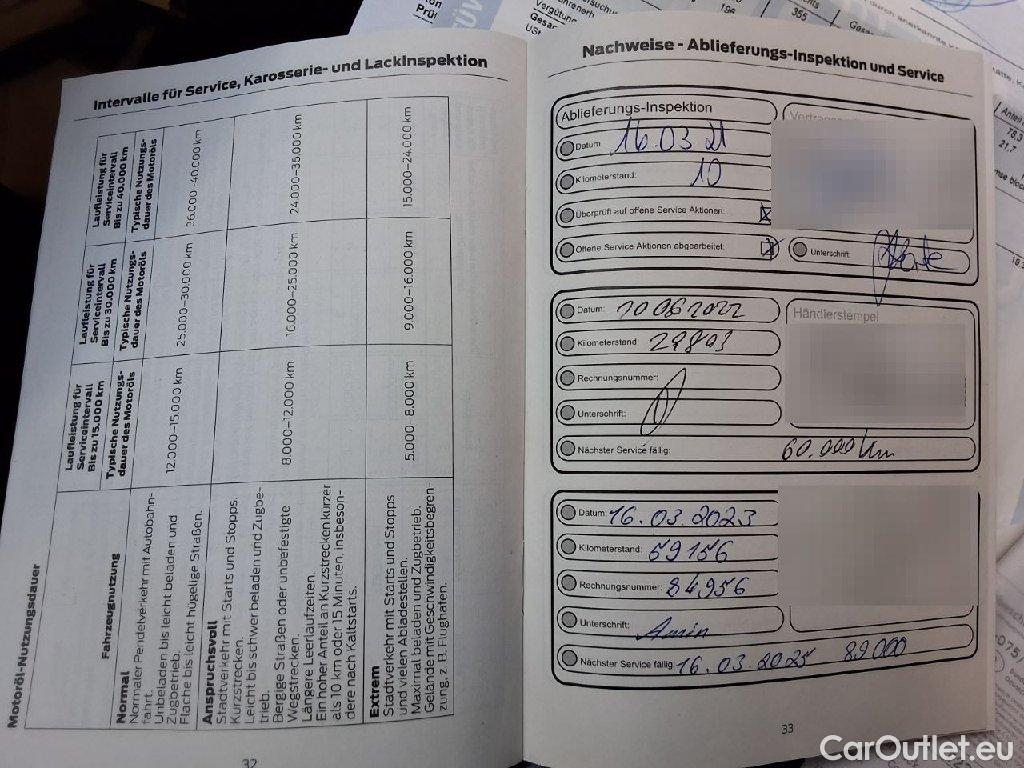 Intervalle für Service, Karosserie- und Lackinspektion
Motoröl-Nutzungsdauer
Fahrzeugnutzung
Laufleistung für Serviceintervall Bis zu 15.000 km
Typische Nutzungsdauer des Motoröls
Laufleistung für Serviceintervall Bis zu 30.000 km
Typische Nutzungsdauer des Motoröls
Laufleistung für Serviceintervall Bis zu 40.000 km
Typische Nutzungsdauer des Motoröls
Normal
Normaler Pendelverkehr mit Autobahnfahrt.
Unbeladen bis leicht beladen und Zugbetrieb.
Flache bis leicht hügelige Straßen.
12.000–15.000 km
25.000–30.000 km
36.000–40.000 km
Anspruchsvoll
Stadtverkehr mit Starts und Stopps.
Kurzstrecken.
Leicht bis schwer beladen und Zugbetrieb.
Bergige Straßen oder unbefestigte Wegstrecken.
Längere Leerlaufzeiten.
Ein hoher Anteil an Kurzstrecken kürzer als 10 km oder 15 Minuten, insbesondere nach Kaltstarts.
8.000–12.000 km
16.000–25.000 km
24.000–36.000 km
Extrem
Stadtverkehr mit Starts und Stopps und vielen Abladestellen.
Maximal beladen und Zugbetrieb.
Gelände mit Geschwindigkeitsbegrenzung, z. B. Flughafen.
5.000–8.000 km
9.000–16.000 km
15.000–24.000 km
32
Nachweise - Ablieferungs-Inspektion und Service
Ablieferungs-Inspektion
Datum 16.03.21
Kilometerstand: 10
Überprüft auf offene Service Aktionen:
Offene Service Aktionen abgearbeitet:
Unterschrift
Datum: 20 06 2022
Händlerstempel
Kilometerstand 29803
Rechnungsnummer:
Unterschrift:
Nächster Service fällig: 60.000 km
Datum: 16.03.2023
Kilometerstand: 59156
Rechnungsnummer: 84956
Unterschrift: Amin
Nächster Service fällig 16.03.2025 89000
33
CarOutlet.eu